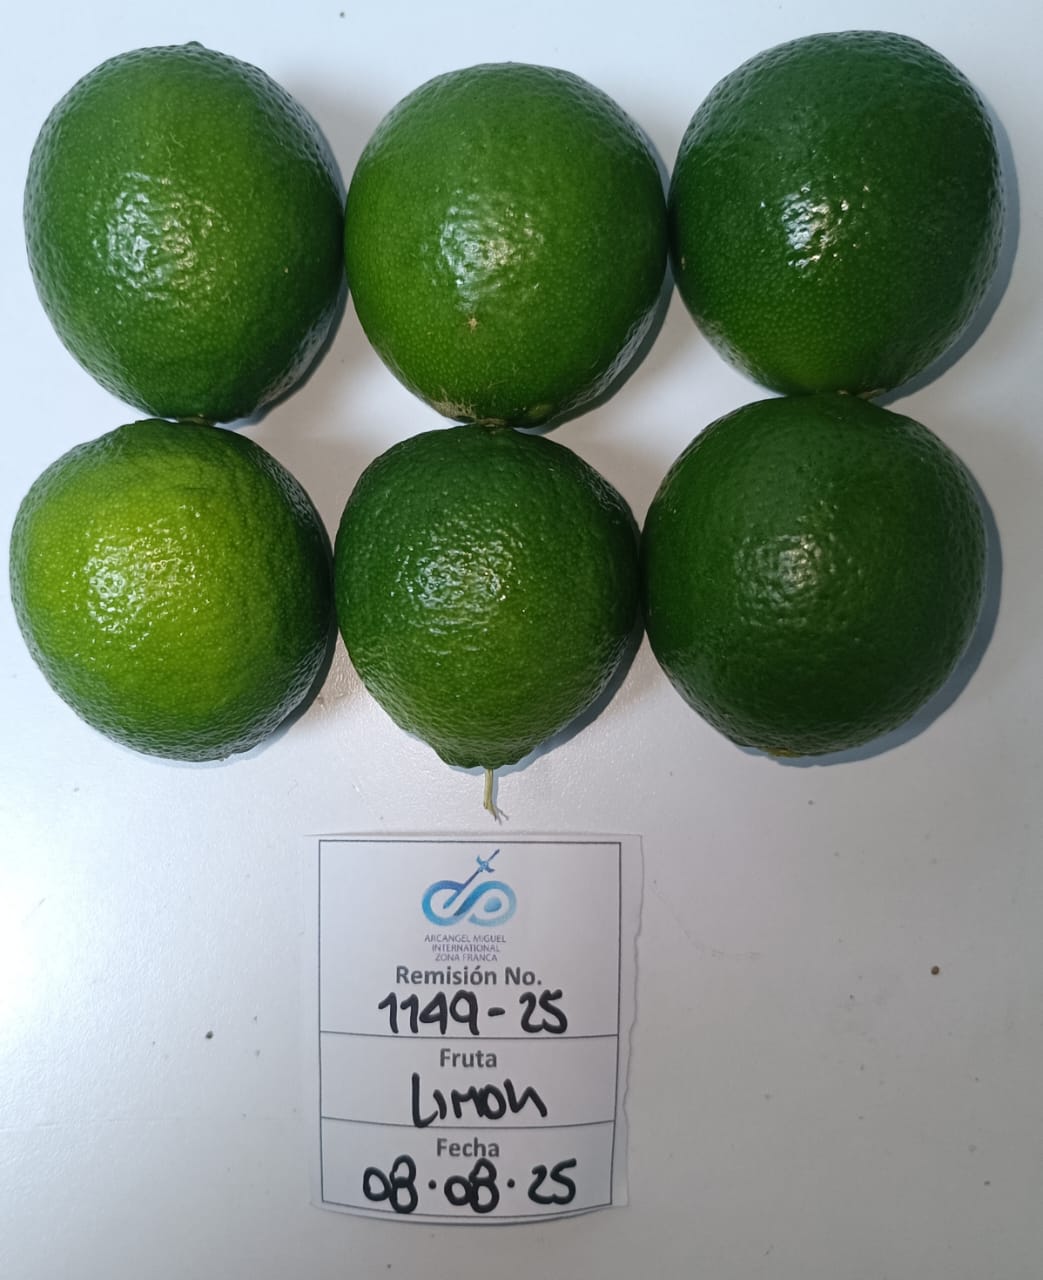 ARCANGEL MIGUEL
INTERNATIONAL
ZONA FRANCA
Remisión No.
1149-25
Fruta
LIMON
Fecha
08.08.25